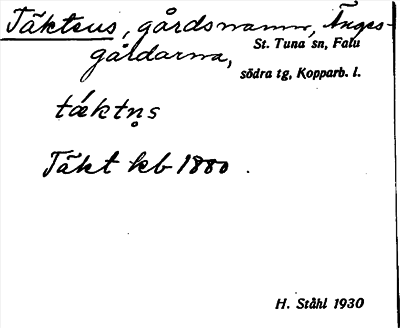 Täktens, gårdsnamn, Ängs-
gårdarna, St. Tuna sn, Falu
södra tg, Kopparb. l.
tǽktn̥s
Täkt kb 1880.
H. Ståhl 1930